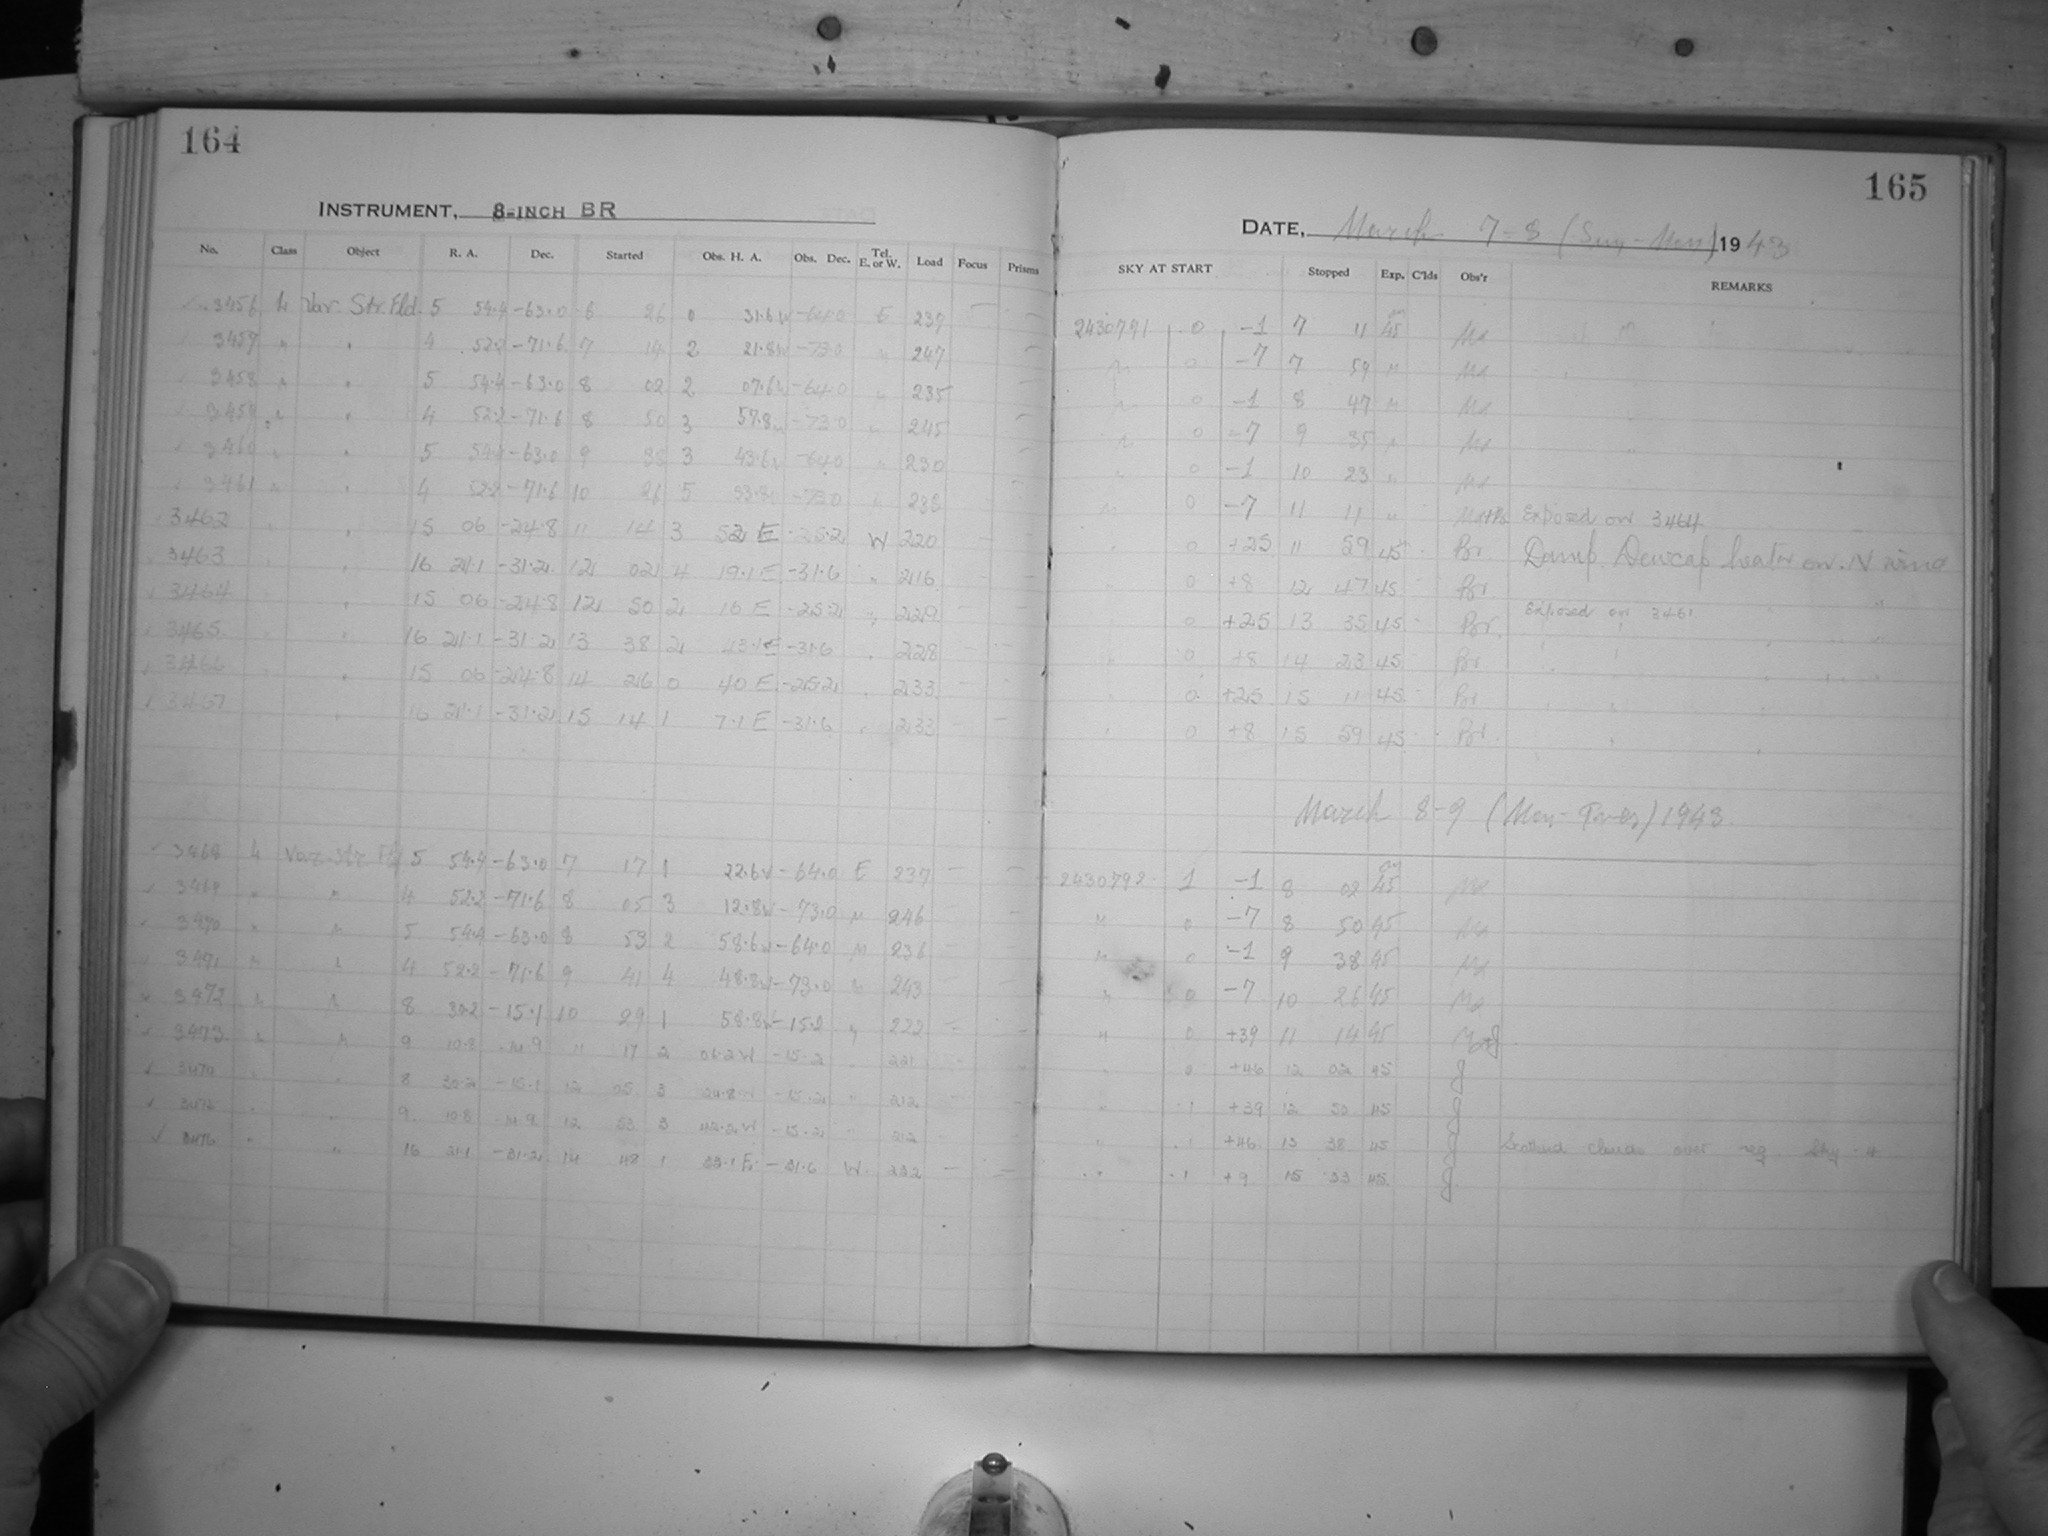 164
INSTRUMENT, 8-INCH BR
No. Class Object R. A. Dec. Started Obs. H. A. Obs. Dec. Tel. E. or W. Load Focus Prisms
3456 Var. Str. Fld. 5 54.4 -63.0 6 26 0 31.6W -64.0 E 237
4 52.2 -71.6 7 14 2 21.8W -73.0 " 247
3458 " " 5 54.4 -63.0 8 02 2 07.6W -64.0 " 235
3459 " " 4 52.2 -71.6 8 50 3 57.8W -73.0 " 245
3460 " " 5 54.4 -63.0 9 38 3 43.6W -64.0 " 230
3461 " " 4 52.2 -71.6 10 26 5 -73.0 " 238
3462 " " 15 06 -24.8 11 14 3 52 E -25.2 W 220
3463 " " 16 21.1 -31.2 12 02 4 19.1 E -31.6 " 216
3464 " " 15 06 -24.8 12 50 2 16 E -25.2 " 229
3465 " " 16 21.1 -31.2 13 38 2 43.1 E -31.6 " 228
3466 " 15 06 -24.8 14 26 0 40 E -25.2 " 233
3467 " 16 21.1 -31.2 15 14 1 7.1 E -31.6 " 233
3468 Var. Str. Fld 5 54.4 -63.0 7 17 1 22.6W -64.0 E 237
3469 " " 4 52.2 -71.6 8 05 3 12.8W -73.0 " 246
3470 " " 5 54.4 -63.0 8 53 2 58.6W -64.0 " 236
3471 " " 4 52.2 -71.6 9 41 4 48.8W -73.0 " 243
3472 " " 8 30.2 -15.1 10 29 1 58.8W -15.2 " 222
3473 " " 9 10.8 -14.9 11 17 2 06.2W -15.2 " 221
8 30.2 -15.1 12 05 3 -15.2 " 212
9 10.8 -14.9 12 53 3 42.2W -15.2 " 212
3476 " " 16 21.1 -31.2 14 48 1 33.1 E -31.6 W 222
165
DATE, March 7-8 (Sun-Mon) 1943
SKY AT START Stopped Exp. C'lds Obs'r REMARKS
2430791 0 -1 7 11 45 Md
" 0 -7 7 59 " Md
" 0 -1 8 47 " Md
" 0 -7 9 35 " Md
" 0 -1 10 23 " Md
" 0 -7 11 11 " Exposed on 3464
" 0 +25 11 59 45 Br. Damp. Dewcap heater on. N wind
" 0 +8 12 47 45 Br.
" 0 +25 13 35 45 Br. Exposed on 3461
" 0 +8 14 23 45 Br
" 0 +25 15 11 45 Br
" 0 +8 15 59 45 Br.
March 8-9 (Mon-Tues) 1943
2430792 1 -1 8 02 45 Md
" 0 -7 8 50 45 Md
" 0 -1 9 38 45 Md
" 0 -7 10 26 45 Md
" 0 +39 11 14 45
" 0 +46 12 02 45
" 1 +39 12 50 45
" 1 +46 13 38 45 Scattered clouds over reg. Sky
" 1 +9 15 33 45